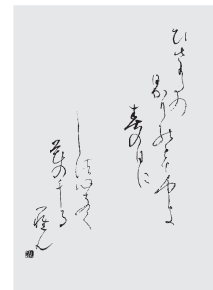 ひさかたの
ひかりのとけき
春の日に
しつ心なく
花のちる
らむ